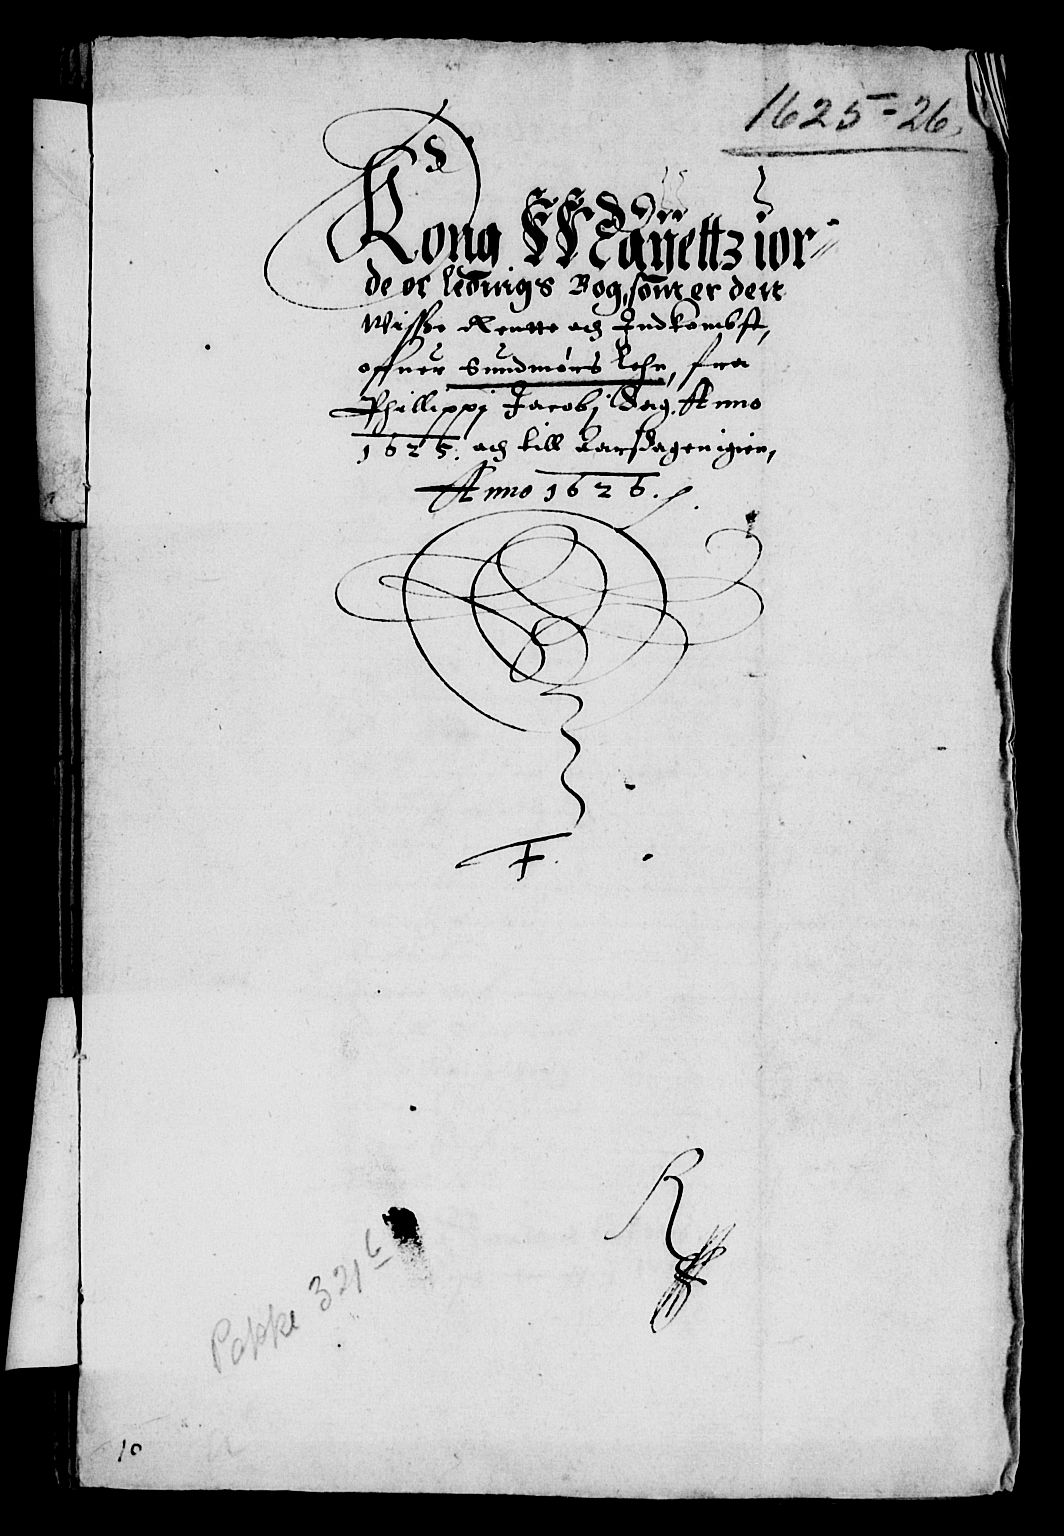 1625-26.
Kong Mayettz ior
de oc ledings Bog, som er dett
Wisse Rentte och Indkombst,
offuer Sundmørs Lehn, fra
Phillippj Jacobj Dag, Anno
1625. och till Aarsdagen igien,
Anno 1626.
F.
R
Pakke 321 6
10